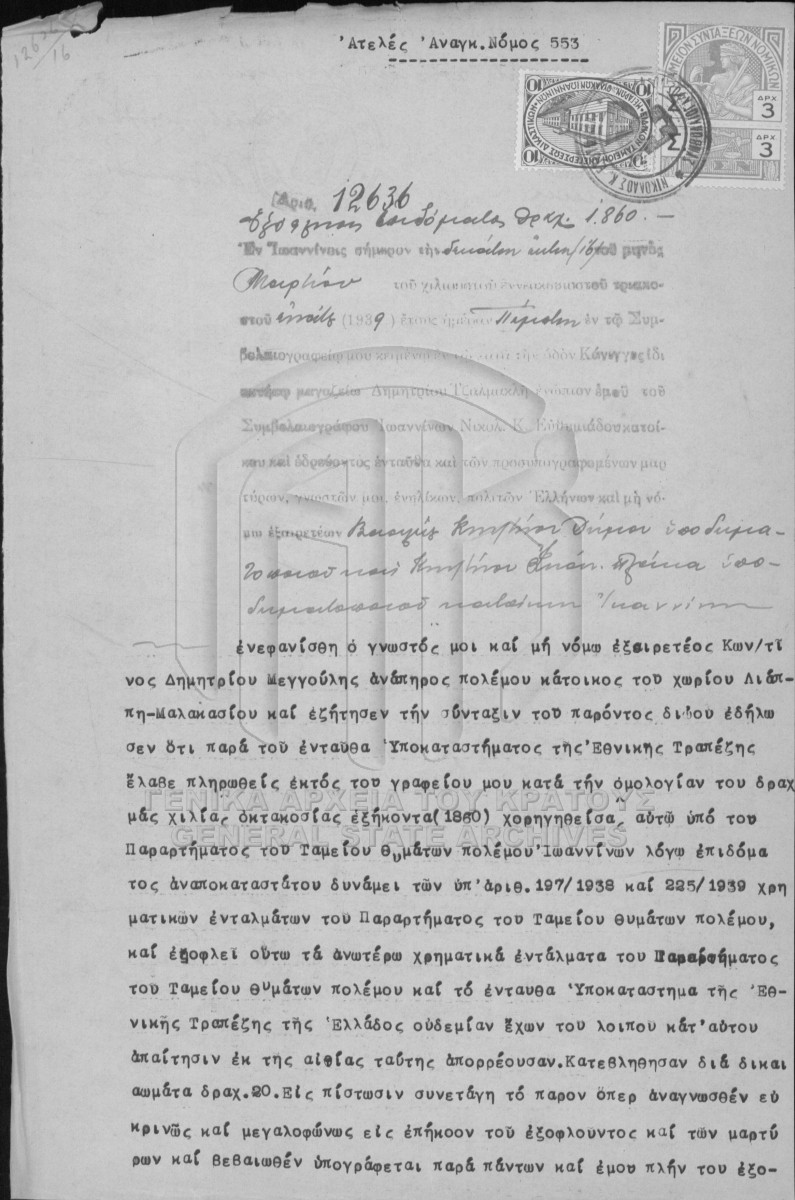 Ἀτελές Ἀναγκ.Νόμος 553
ΤΑΜΕΙΟΝ ΣΥΝΤΑΞΕΩΝ ΝΟΜΙΚΩΝ
ΔΡΧ 3
ΔΡΧ 3
10
10
12636
16
Ἀριθ. 12636
Ἐξόφλησις ἐπιδόματος δραχ. 1.860.—
Ἐν Ἰωαννίνοις σήμερον τήν δεκάτην ἕκτην /16/ τοῦ μηνός
Μαρτίου τοῦ χιλιοστοῦ ἐννεακοσιοστοῦ τριακο-
στοῦ ἐνάτου (1939) ἔτους ἡμέραν Πέμπτην ἐν τῷ Συμ-
βολαιογραφείῳ μου κειμένῳ κατά τήν ὁδόν Κάνιγγος ἰδι
οκτήτῳ μαγαζείῳ Δημητρίου Τζαλμακλῆ ἐνώπιον ἐμοῦ τοῦ
Συμβολαιογράφου Ἰωαννίνων Νικολ. Κ. Εὐθυμιάδου κατοί-
κου καί ἑδρεύοντος ἐνταῦθα καί τῶν προσυπογραφομένων μαρ
τύρων, γνωστῶν μοι, ἐνηλίκων, πολιτῶν Ἑλλήνων καί μή νό-
μῳ ἐξαιρετέων ὑποδημα-
τοποιοῦ καί ὑπο-
δηματοποιοῦ κατοίκων Ἰωαννίνων
ἐνεφανίσθη ὁ γνωστός μοι καί μή νόμῳ ἐξαιρετέος Κων/τῖ
νος Δημητρίου Μεγγούλης ἀνάπηρος πολέμου κάτοικος τοῦ χωρίου Λιάπ-
πη-Μαλακασίου καί ἐζήτησεν τήν σύνταξιν τοῦ παρόντος δι'οὗ ἐδήλω
σεν ὅτι παρά τοῦ ἐνταῦθα Ὑποκαταστήματος τῆς Ἐθνικῆς Τραπέζης
ἔλαβε πληρωθείς ἐκτός τοῦ γραφείου μου κατά τήν ὁμολογίαν του δραχ
μάς χιλίας ὀκτακοσίας ἑξήκοντα(1860) χορηγηθείσας αὐτῷ ὑπό τοῦ
Παραρτήματος τοῦ Ταμείου θυμάτων πολέμου Ἰωαννίνων λόγῳ ἐπιδόμα
τος ἀναποκαταστάτου δυνάμει τῶν ὑπ'ἀριθ.197/1938 καί 225/1939 χρη
ματικῶν ἐνταλμάτων τοῦ Παραρτήματος τοῦ Ταμείου θυμάτων πολέμου,
καί ἐξοφλεῖ οὕτω τά ἀνωτέρω χρηματικά ἐντάλματα τοῦ Παραρτήματος
τοῦ Ταμείου θυμάτων πολέμου καί τό ἐνταῦθα Ὑποκατάστημα τῆς Ἐθ-
νικῆς Τραπέζης τῆς Ἑλλάδος οὐδεμίαν ἔχων τοῦ λοιποῦ κάτ'αὐτοῦ
ἀπαίτησιν ἐκ τῆς αἰτίας ταύτης ἀπορρέουσαν.Κατεβλήθησαν διά δικαι
αωμάτα δραχ.20.Εἰς πίστωσιν συνετάγη τό παρόν ὅπερ ἀναγνωσθέν εὐ
κρινῶς καί μεγαλοφώνως εἰς ἐπήκοον τοῦ ἐξοφλοῦντος καί τῶν μαρτύ
ρων καί βεβαιωθέν ὑπογράφεται παρά πάντων καί ἐμοῦ πλήν τοῦ ἐξο-
ΓΕΝΙΚΑ ΑΡΧΕΙΑ ΤΟΥ ΚΡΑΤΟΥΣ
GENERAL STATE ARCHIVES